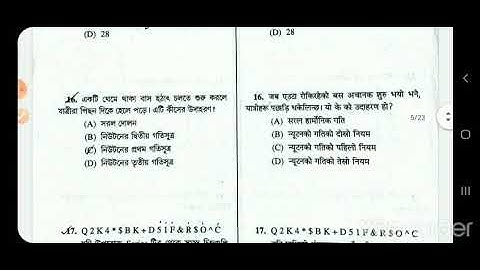 (D) 28
16. একটি থেমে থাকা বাস হঠাৎ চলতে শুরু করলে
যাত্রীরা পিছন দিকে হেলে পড়ে। এটি কীসের উদাহরণ?
(A) সরল দোলন
(B) নিউটনের দ্বিতীয় গতিসূত্র
(C) নিউটনের প্রথম গতিসূত্র
(D) নিউটনের তৃতীয় গতিসূত্র
17. Q2K4*$BK+D51F&R$O^C
(D) 28
16. जब एउटा रोकिरहेको बस अचानक शुरु भयो भने,
यात्रीहरू पछाड़ि धकेलिन्छ। यो के को उदाहरण हो?
(A) सरल हार्मोनिक गति
(B) न्यूटनको गतिको दोस्रो नियम
(C) न्यूटनको गतिको पहिलो नियम
(D) न्यूटनको गतिको तेस्रो नियम
17. Q2K4*$BK+D51F&R$O^C
5/23